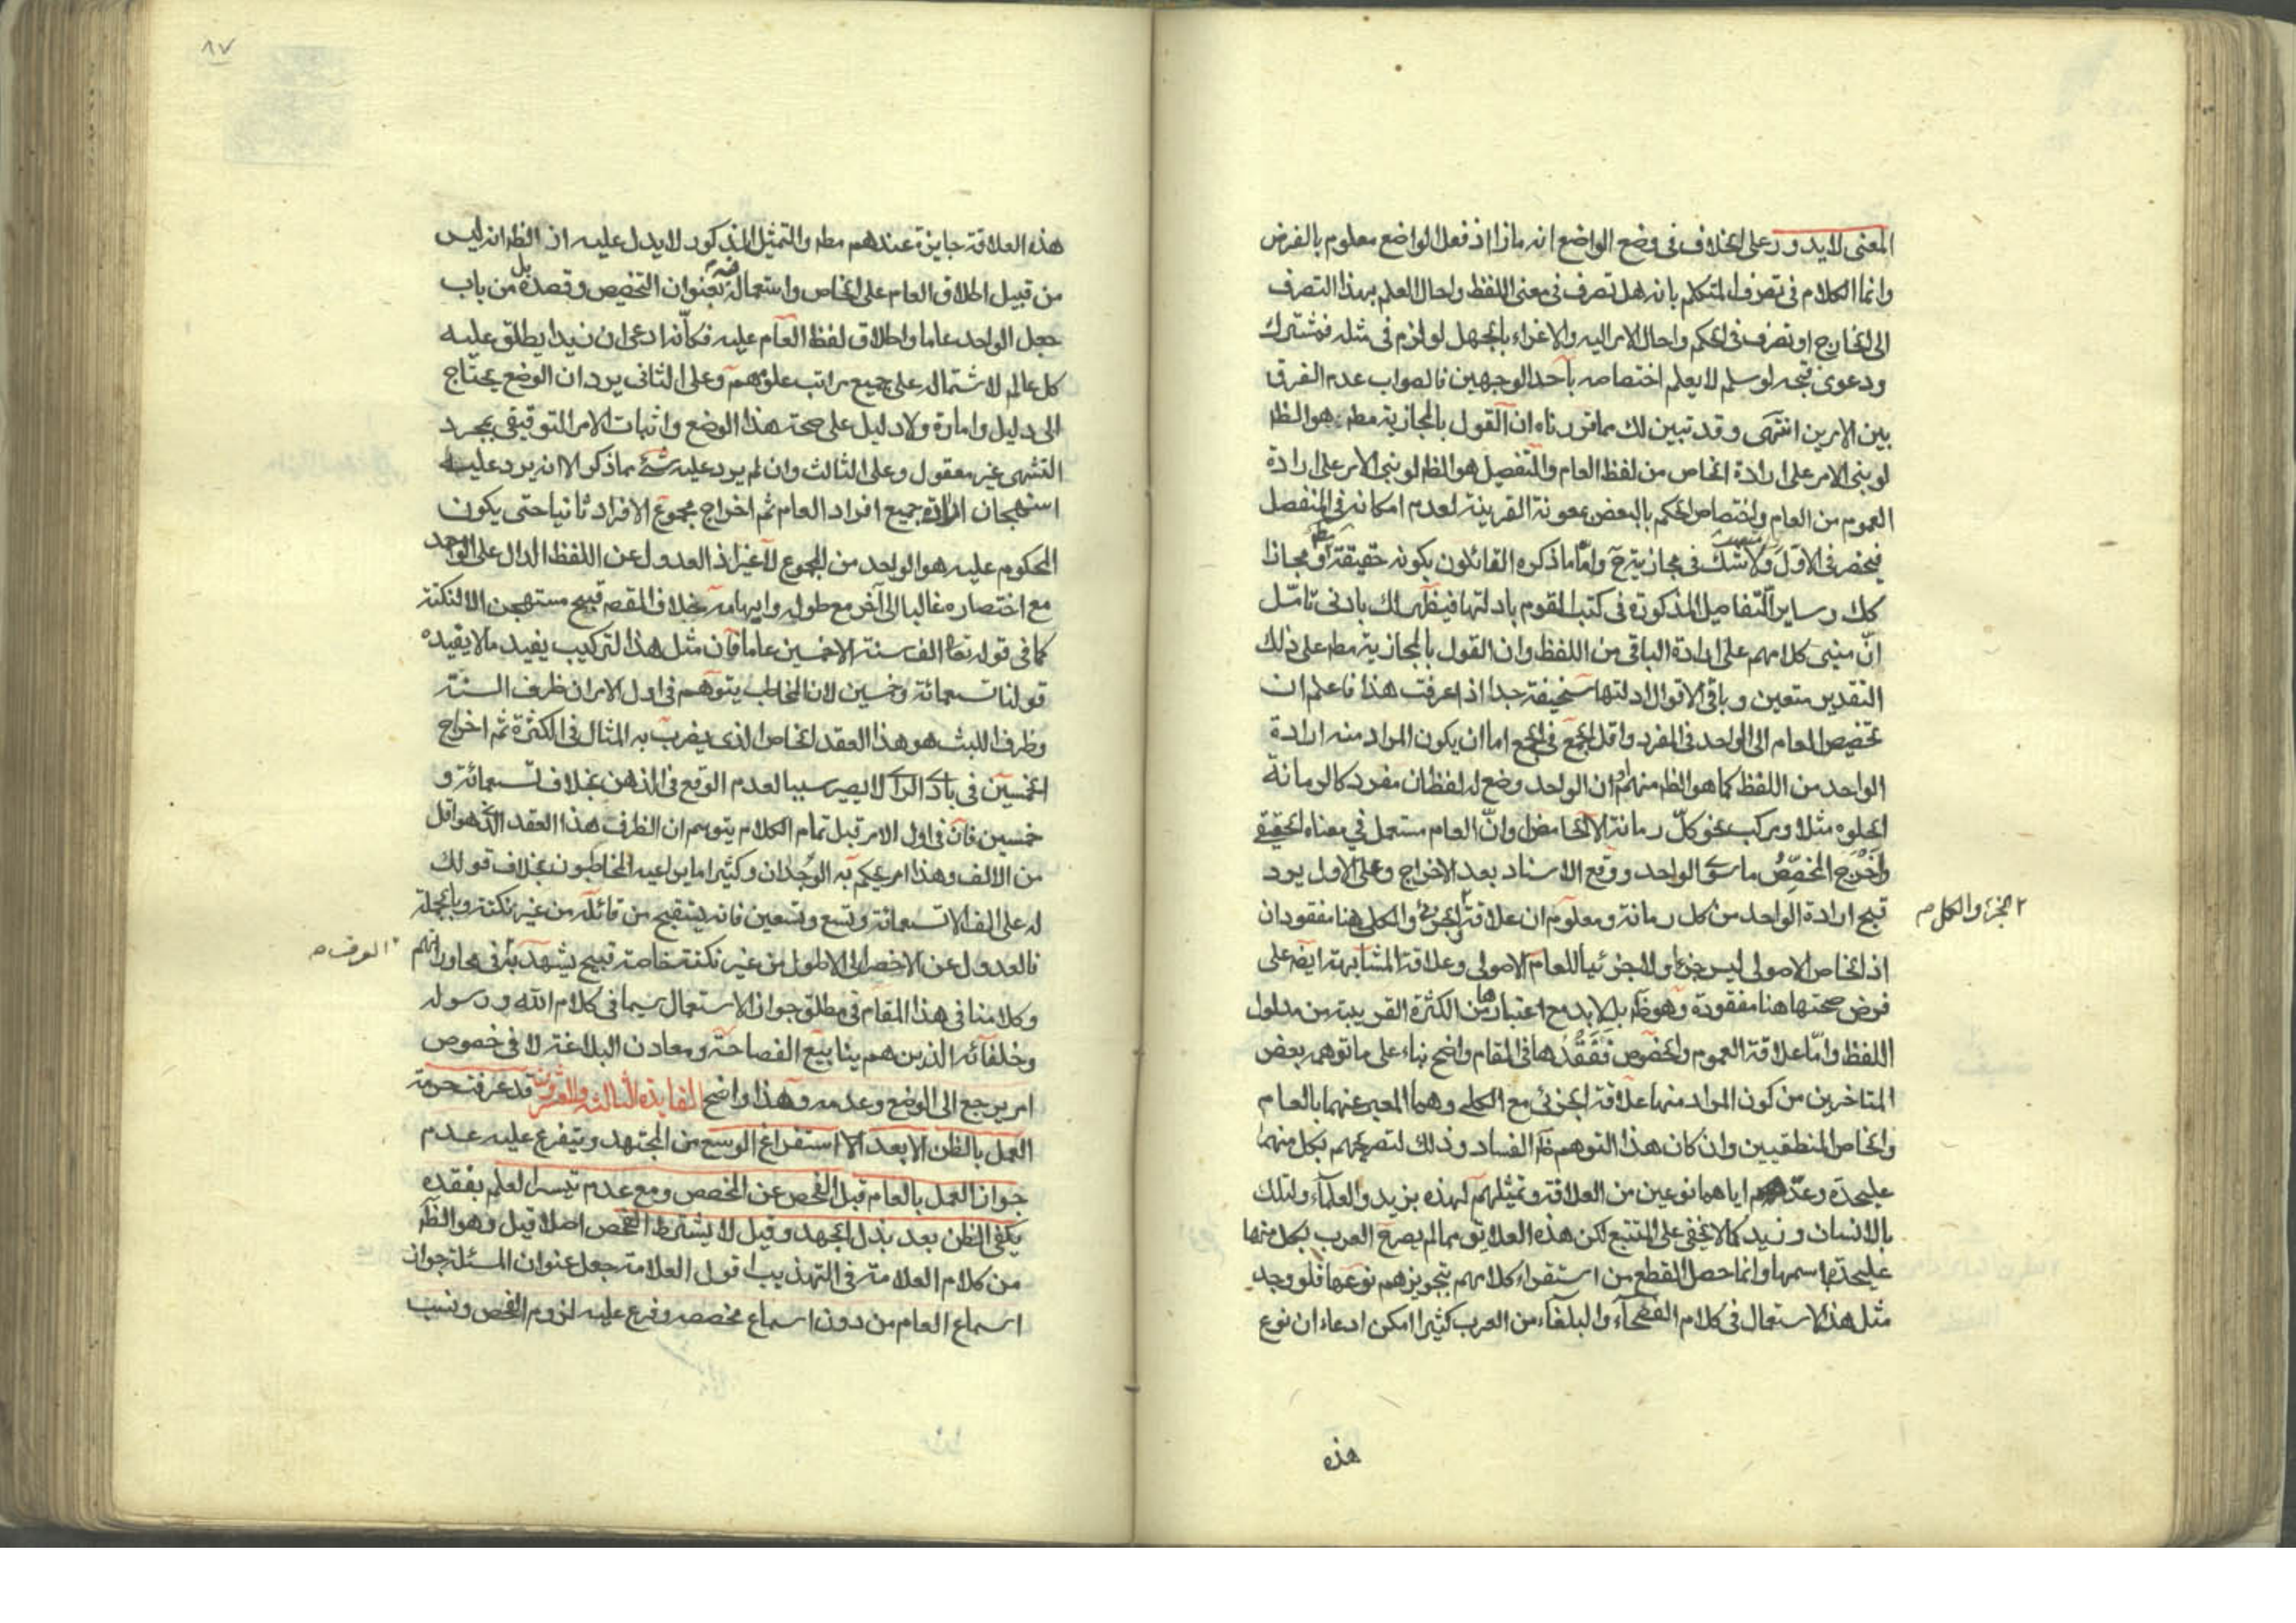 المعنى لا يدور على الخلاف فى وضع الواضع انه ماذا اذ فعل الواضع معلوم بالفرض
وانما الكلام فى تصرف المتكلم بانه هل تصرف فى معنى اللفظ واحال العلم بهذا التصرف
الى الخارج او تصرف فى الحكم واحال الامر اليه والاغراء بالجهل لو لزم فى مثله فمشترك
ودعوى قبحه لو سلم لا يعلم اختصاصه بأحد الوجهين فالصواب عدم الفرق
بين الامرين انتهى وقد تبين لك مما قررناه ان القول بالمجازية مطه هو الظ
لو بنى الامر على ارادة الخاص من لفظ العام والتفصيل هو الظ لو بنى الامر على ارادة
العموم من العام واختصاص الحكم بالبعض بمعونة القرينة لعدم امكانه فى المنفصل
فينحصر فى الاول ولا شك فى مجازيته ح وامّا ما ذكره القائلون بكونه حقيقة او مجازا
كك وساير التفاصيل المذكورة فى كتب القوم بادلتها فيظهر لك بادنى تامّل
انّ مبنى كلامهم على ارادة الباقى من اللفظ وان القول بالمجازية مطه على ذلك
التقدير متعين وباقى الاقوال ادلتها سخيفة جدا اذا عرفت هذا فاعلم ان
تخصيص العام الى الواحد فى المفرد واقل الجمع فى الجمع اما ان يكون المراد منه ارادة
الواحد من اللفظ كما هو الظ منهم او ان الواحد وضع له لفظان مفرد كالرمانة
الحلوه مثلا ومركب نحو كلّ رمانة الا الحامض او انّ العام مستعمل في معناه الحقيقى
وأَخْرَج المخصِّصُ ما سوى الواحد ووقع الاسناد بعد الاخراج وعلى الاول يرد
قبح ارادة الواحد من كل رمانة ومعلوم ان علاقة الجزئى والكلى هنا مفقودان
٢ الجزء والكل م
اذ الخاص الاصولى ليس جزءا ولا جزئيا للعام الاصولى وعلاقة المشابهة ايضه على
فرض صحتها هنا مفقودة وهو ظ بل لابد مع اعتبارها من الكثرة القريبة من مدلول
اللفظ وامّا علاقة العموم والخصوص فَفَقْدُها فى المقام واضح بناء على ما توهمه بعض
المتاخرين من كون المراد منها علاقة الجزئى مع الكلى وهما المعبر عنهما بالعام
والخاص المنطقيين وان كان هذا التوهم ظ الفساد وذلك لتصريحهم بكل منهما
عليحدة وعدّهم اياهما نوعين من العلاقة وتمثيلهم لهذه بزيد والعلماء ولتلك
بالانسان وزيد كما لا يخفى على المتتبع لكن هذه العلايق مما لم يصرح العرب بكل منها
عليحدة باسمها وانما حصل القطع من استقراء كلامهم بتجويزهم نوعها فلو وجد
مثل هذا الاستعمال فى كلام الفصحاء والبلغاء من العرب كثيرا امكن ادعاء ان نوع
هذه
٨٧
هذه العلاقة جايزة عندهم مطه والتمثيل المذكور لا يدل عليه اذ الظ انه ليس
من قبيل اطلاق العام على الخاص واستعماله فيه بعنوان التخصيص وقصده بل من باب
جعل الواحد عاما واطلاق لفظ العام عليه فكأنّه ادعى ان زيدا يطلق عليه
كل عالم لاشتماله على جميع مراتب علومهم وعلى الثانى يرد ان الوضع يحتاج
الى دليل وامارة ولا دليل على صحة هذا الوضع واثبات الامر التوقيفى بمجرد
التشهى غير معقول وعلى الثالث وان لم يرد عليه شئ مما ذكر الا انه يرد عليه
استهجان ارادة جميع افراد العام ثم اخراج مجموع الافراد ثانيا حتى يكون
المحكوم عليه هو الواحد من المجموع لا غير اذ العدول عن اللفظ الدال على الواحد
مع اختصاره غالبا الى آخر مع طوله وايهامه خلاف المقصم قبيح مستهجن الا لنكتة
كما فى قوله تعا الف سنة الا خمسين عاما فان مثل هذا التركيب يفيد ما لا يفيده
قولنا تسعمائة وخمسين لان المخاطب يتوهم فى اول الامر ان ظرف السنة
وظرف اللبث هو هذا العقد الخاص الذى يضرب به المثال فى الكثرة ثم اخراج
الخمسين فى بادى الراى لا يصير سببا لعدم الوقع فى الذهن بخلاف تسعمائة و
خمسين فان فى اول الامر قبل تمام الكلام يتوهم ان الظرف هذا العقد الذى هو اقل
من الالف وهذا امر يحكم به الوجدان وكثيرا ما يراعيه المخاطبون بخلاف قولك
له على الف الا تسعمائة وتسع وتسعين فانه يستقبح من قائله من غير نكتة وبالجملة
فالعدول عن الاخصر الى الاطول من غير نكتة خاصة قبيح يشهد به فى محاوراتهم
٢ العرف م
وكلامنا فى هذا المقام فى مطلق جواز الاستعمال سيما فى كلام الله ورسوله
وخلفائه الذين هم ينابيع الفصاحة ومعادن البلاغة لا فى خصوص
امر يرجع الى الوضع وعدمه وهذا واضح الفايدة الثالثة والعشرون قد عرفت حرمة
العمل بالظن الا بعد الا استفراغ الوسع من المجتهد ويتفرع عليه عدم
جواز العمل بالعام قبل الفحص عن المخصص ومع عدم تيسر العلم بفقده
يكفى الظن بعد بذل الجهد وقيل لا يشترط الفحص اصلا قيل وهو الظ
من كلام العلامة فى التهذيب قول العلامة جعل عنوان المسئلة جواز
اسماع العام من دون اسماع مخصصه وفرع عليه لزوم الفحص ونسب